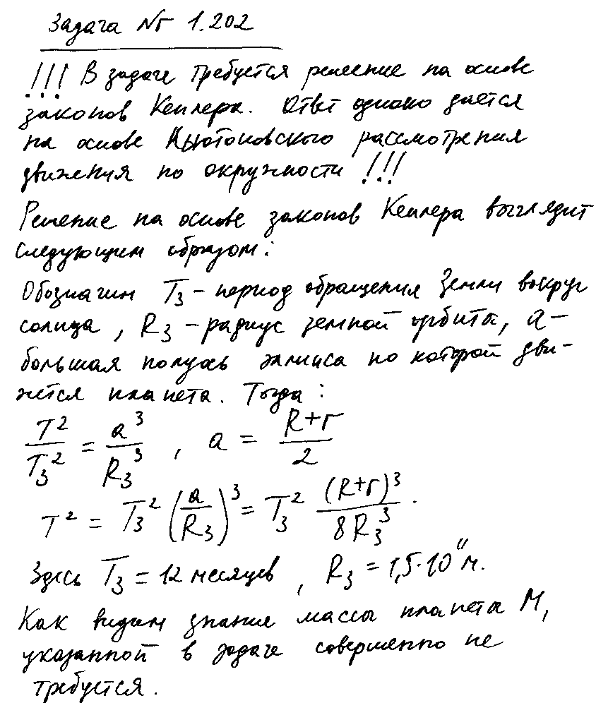 Задача № 1.202
!!! В задаче требуется решение на основе
законов Кеплера. Ответ однако дается
на основе Ньютоновского рассмотрения
движения по окружности !!!
Решение на основе законов Кеплера выглядит
следующим образом:
Обозначим T₃ – период обращения Земли вокруг
солнца, R₃ – радиус земной орбиты, a –
большая полуось эллипса по которой дви-
жется планета. Тогда:
T²/T₃² = a³/R₃³ , a = (R+r)/2
T² = T₃² (a/R₃)³ = T₃² (R+r)³/8R₃³ .
Здесь T₃ = 12 месяцев , R₃ = 1,5·10¹¹ м.
Как видим знание массы планеты M,
указанной в задаче совершенно не
требуется.